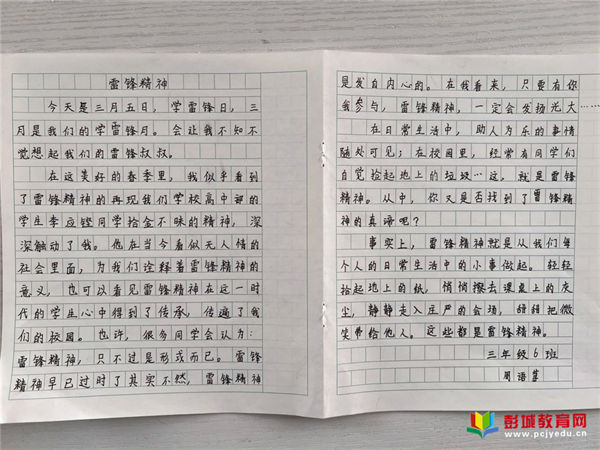 雷锋精神
今天是三月五日，学雷锋日，三
月是我们的学雷锋月。会让我不知不
觉想起我们的雷锋叔叔。
在这美好的春季里，我似乎看到
了雷锋精神的再现我们学校高中部的
学生李应铿同学拾金不昧的精神，深
深触动了我。他在当今看似无人情的
社会里面，为我们诠释着雷锋精神的
意义，也可以看见雷锋精神在这一时
代的学生心中得到了传承，传遍了我
们的校园。也许，很务同学会认为：
雷锋精神，只不过是形式而已。雷锋
精神早已过时了其实不然，雷锋精神
是发自内心的。在我看来，只要有你
我参与，雷锋精神，一定会发扬光大……
在日常生活中，助人为乐的事情
随处可见；在校园里，经常有同学们
自觉捡起地上的垃圾…这，就是雷锋
精神。从中，你又是否找到了雷锋精
神的真谛呢？
事实上，雷锋精神就是从我们每
个人的日常生活中的小事做起。轻轻
拾起地上的纸，悄悄擦去课桌上的灰
尘，静静走入庄严的会场，甜甜把微
笑带给他人。这些都是雷锋精神。
三年级6班
周语
彭城教育网
www.pcjyedu.cn